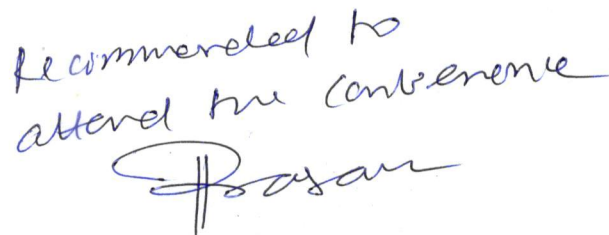 Recommended to
attend the conference